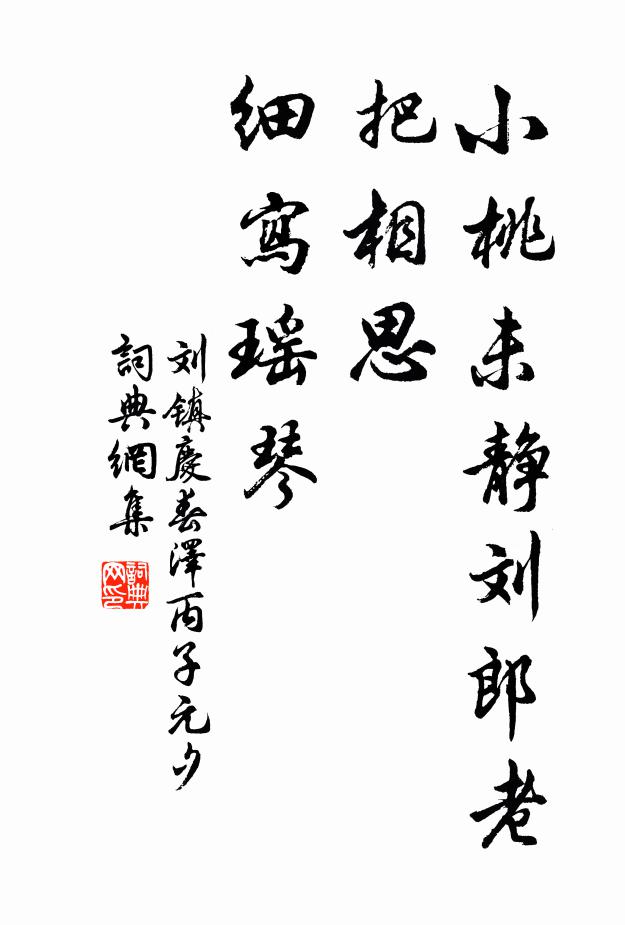 小桃未静刘郎老
把相思
细寫瑶琴
刘镇慶春澤丙子元夕
詞典網集
詞典
网印